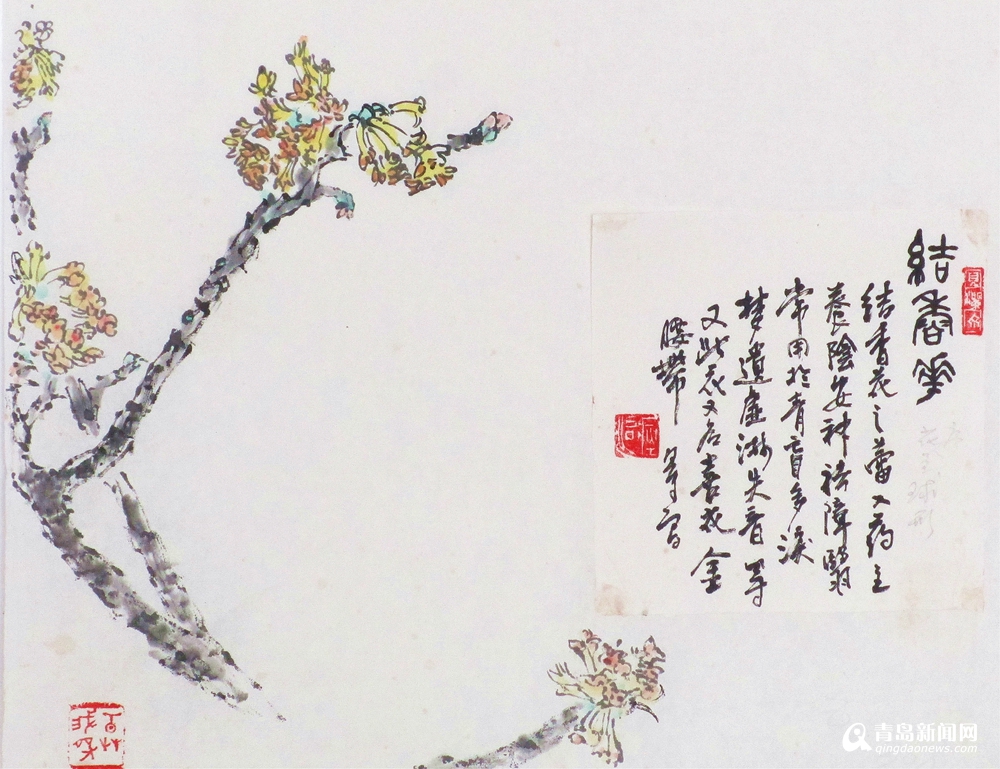 结香花
结香花之蕾入药主
养陰安神祛障翳
常用於青盲多淚
梦遺虚淋失音等
又此花又名喜花金
腰带 等言
青岛新闻网
qingdaonews.com